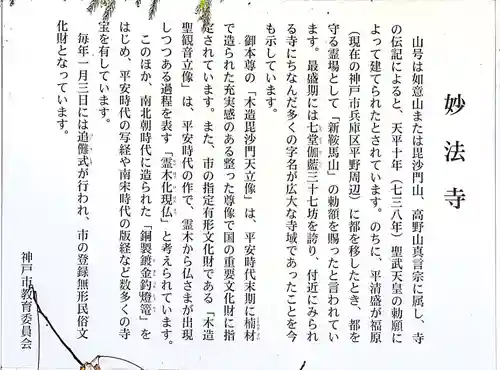 妙法寺
山号は如意山または毘沙門山、高野山真言宗に属し、寺
の伝記によると、天平十年（七三八年）聖武天皇の勅願に
よって建てられたとされています。のちに、平清盛が福原
（現在の神戸市兵庫区平野周辺）に都を移したとき、都を
守る霊場として「新鞍馬山」の勅額を賜ったと言われてい
ます。最盛期には七堂伽藍三十七坊を誇り、付近にみられ
る寺にちなんだ多くの字名が広大な寺域であったことを今
も示しています。
御本尊の「木造毘沙門天立像」は、平安時代末期に楠材
で造られた充実感のある整った尊像で国の重要文化財に指
定されています。また、市の指定有形文化財である「木造
聖観音立像」は、平安時代の作で、霊木から仏さまが出現
しつつある過程を表す「霊木化現仏」と考えられています。
このほか、南北朝時代に造られた「銅製鍍金釣燈籠」を
はじめ、平安時代の写経や南宋時代の版経など数多くの寺
宝を有しています。
毎年一月三日には追儺式が行われ、市の登録無形民俗文
化財となっています。
神戸市教育委員会